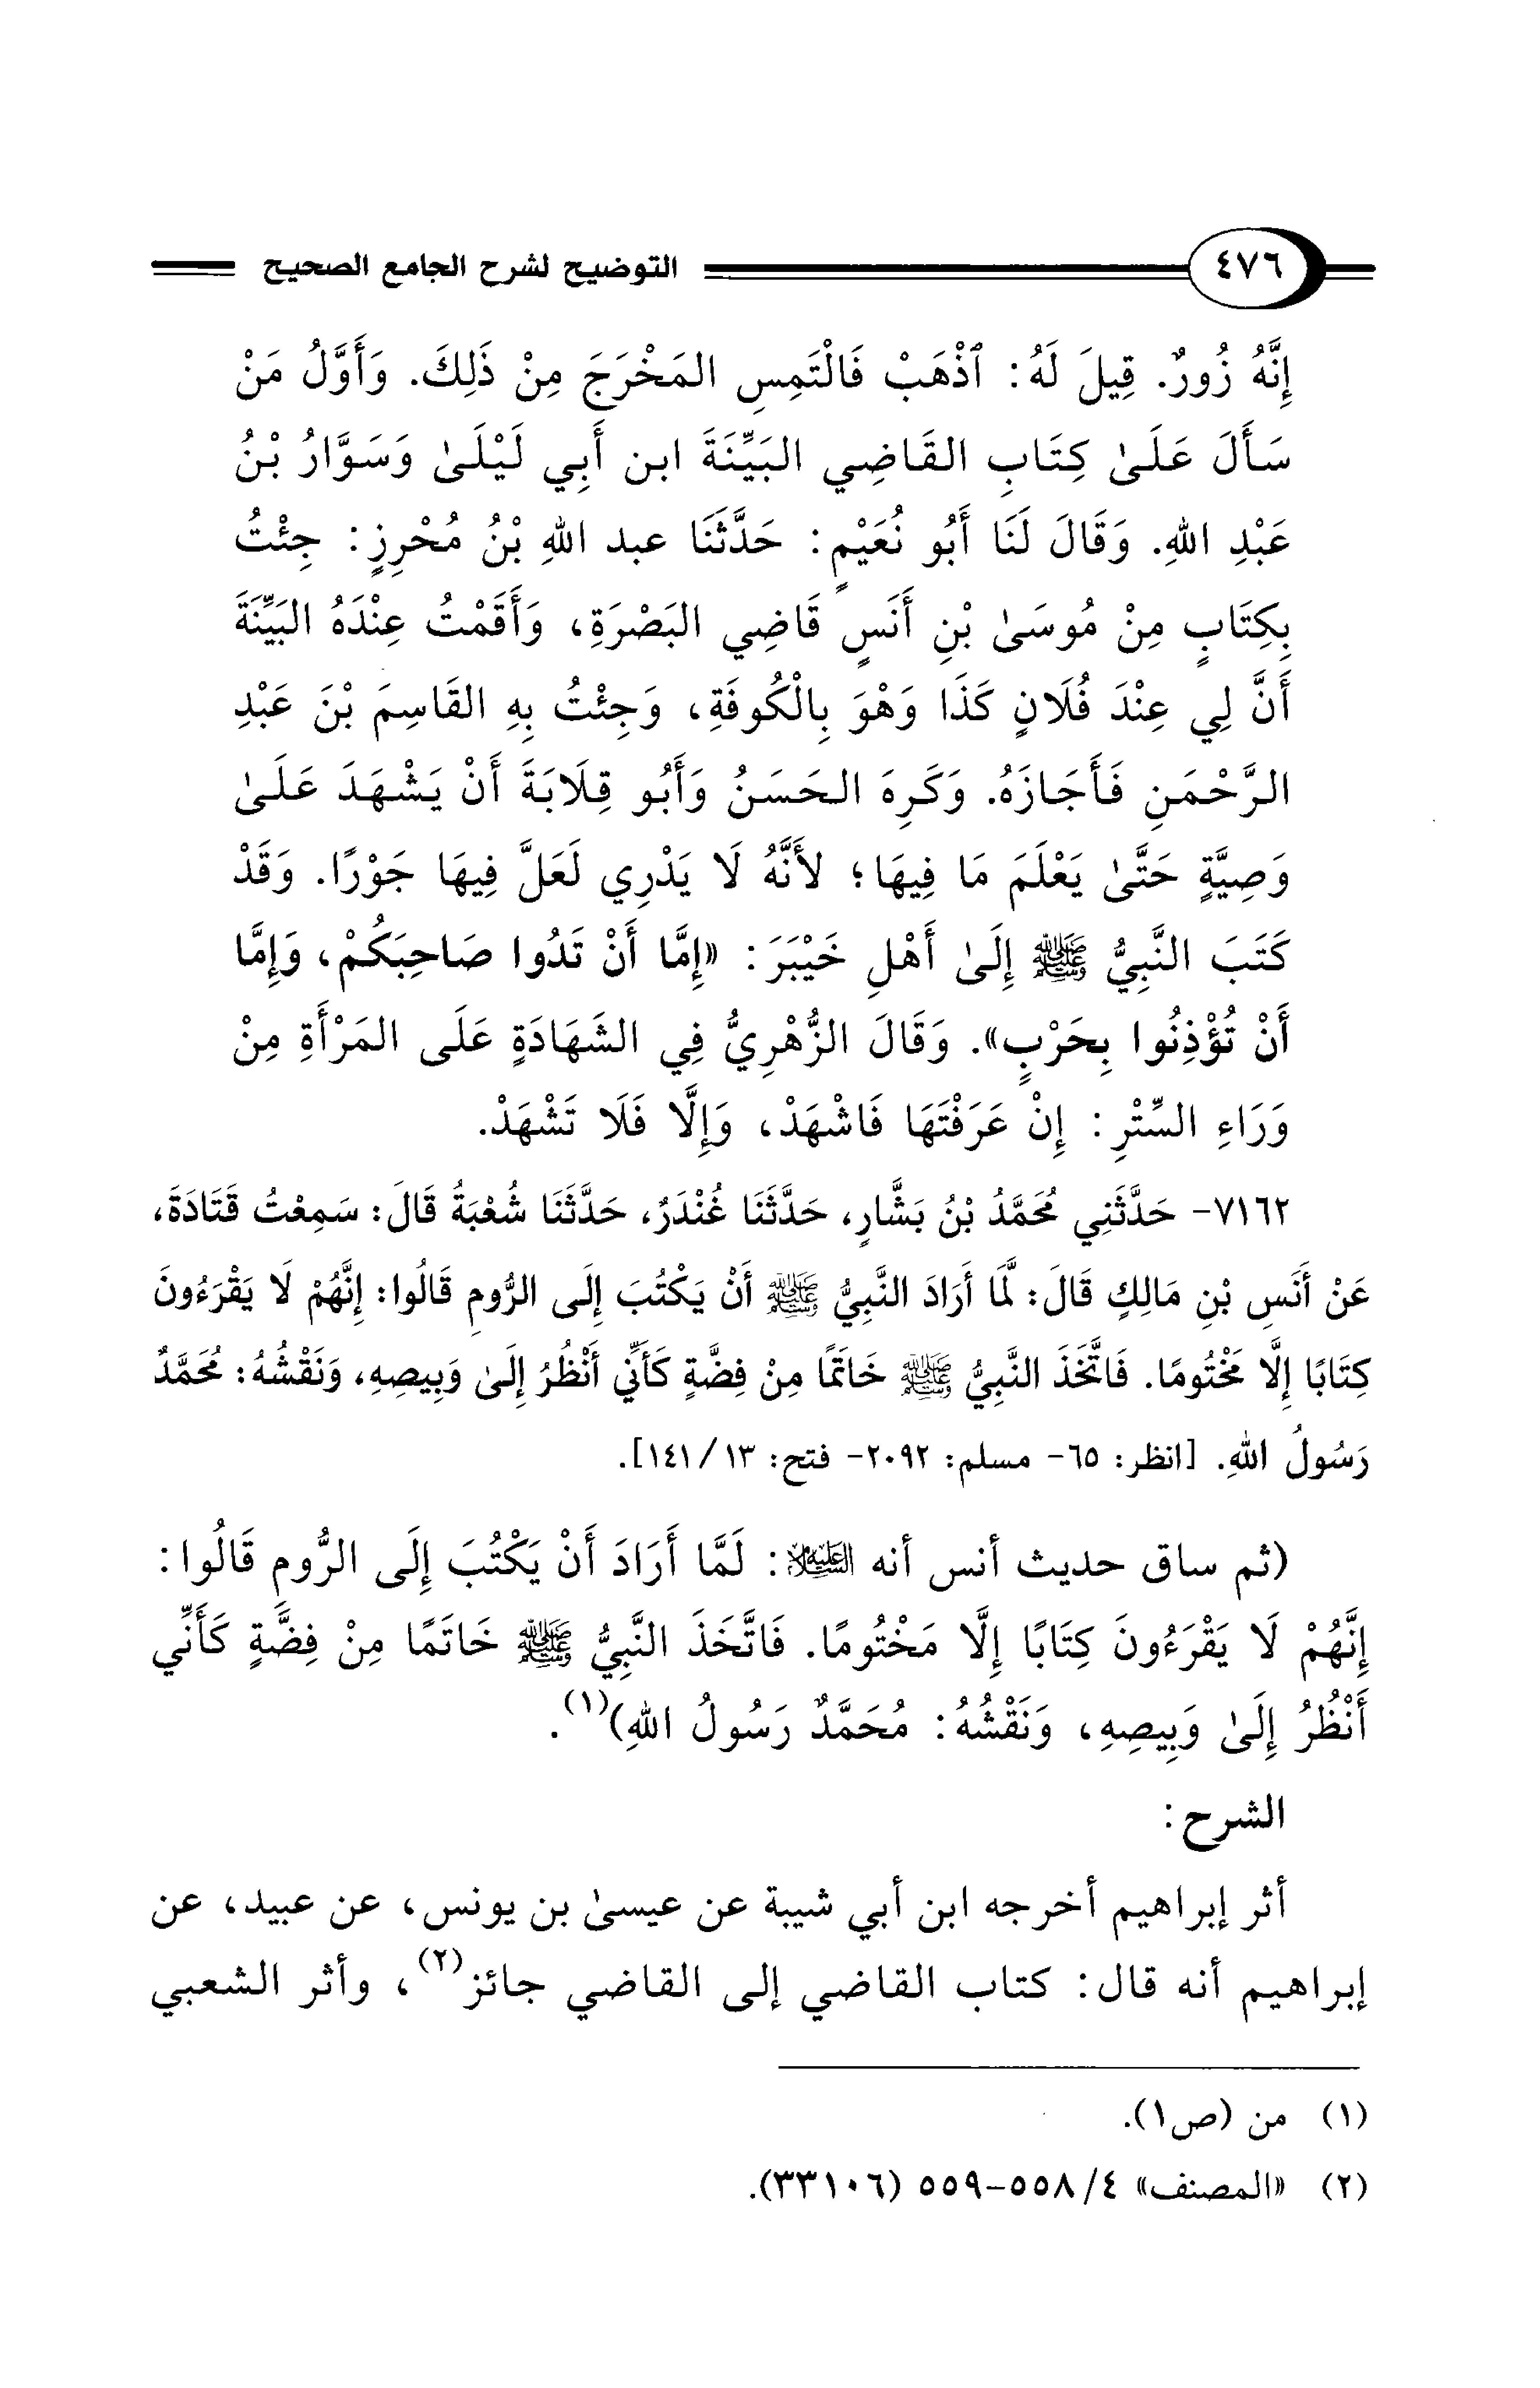 ٤٧٦ التوضيح لشرح الجامع الصحيح
إِنَّهُ زُورٌ. قِيلَ لَهُ: ٱذْهَبْ فَالْتَمِسِ المَخْرَجَ مِنْ ذَلِكَ. وَأَوَّلُ مَنْ
سَأَلَ عَلَىٰ كِتَابِ القَاضِي البَيِّنَةَ ابن أَبِي لَيْلَىٰ وَسَوَّارُ بْنُ
عَبْدِ اللهِ. وَقَالَ لَنَا أَبُو نُعَيْمٍ: حَدَّثَنَا عبد اللهِ بْنُ مُحْرِزٍ: جِئْتُ
بِكِتَابٍ مِنْ مُوسَىٰ بْنِ أَنَسٍ قَاضِي البَصْرَةِ، وَأَقَمْتُ عِنْدَهُ البَيِّنَةَ
أَنَّ لِي عِنْدَ فُلَانٍ كَذَا وَهْوَ بِالْكُوفَةِ، وَجِئْتُ بِهِ القَاسِمَ بْنَ عَبْدِ
الرَّحْمَنِ فَأَجَازَهُ. وَكَرِهَ الحَسَنُ وَأَبُو قِلَابَةَ أَنْ يَشْهَدَ عَلَىٰ
وَصِيَّةٍ حَتَّىٰ يَعْلَمَ مَا فِيهَا؛ لأَنَّهُ لَا يَدْرِي لَعَلَّ فِيهَا جَوْرًا. وَقَدْ
كَتَبَ النَّبِيُّ ﷺ إِلَىٰ أَهْلِ خَيْبَرَ: «إِمَّا أَنْ تَدُوا صَاحِبَكُمْ، وَإِمَّا
أَنْ تُؤْذِنُوا بِحَرْبٍ». وَقَالَ الزُّهْرِيُّ فِي الشَهَادَةٍ عَلَى المَرْأَةِ مِنْ
وَرَاءِ السِّتْرِ: إِنْ عَرَفْتَهَا فَاشْهَدْ، وَإِلَّا فَلَا تَشْهَدْ.
٧١٦٢- حَدَّثَنِي مُحَمَّدُ بْنُ بَشَّارٍ، حَدَّثَنَا غُنْدَرٌ، حَدَّثَنَا شُعْبَةُ قَالَ: سَمِعْتُ قَتَادَةَ،
عَنْ أَنَسِ بْنِ مَالِكٍ قَالَ: لَّمَا أَرَادَ النَّبِيُّ ﷺ أَنْ يَكْتُبَ إِلَى الرُّومِ قَالُوا: إِنَّهُمْ لَا يَقْرَءُونَ
كِتَابًا إِلَّا مَخْتُومًا. فَاتَّخَذَ النَّبِيُّ ﷺ خَاتَمًا مِنْ فِضَّةٍ كَأَنِّي أَنْظُرُ إِلَىٰ وَبِيصِهِ، وَنَقْشُهُ: مُحَمَّدٌ
رَسُولُ اللهِ. [انظر: ٦٥- مسلم: ٢٠٩٢- فتح: ١٣/ ١٤١].
(ثم ساق حديث أنس أنه عليه السلام: لَمَّا أَرَادَ أَنْ يَكْتُبَ إِلَى الرُّومِ قَالُوا:
إِنَّهُمْ لَا يَقْرَءُونَ كِتَابًا إِلَّا مَخْتُومًا. فَاتَّخَذَ النَّبِيُّ ﷺ خَاتَمًا مِنْ فِضَّةٍ كَأَنِّي
أَنْظُرُ إِلَىٰ وَبِيصِهِ، وَنَقْشُهُ: مُحَمَّدٌ رَسُولُ اللهِ)(١).
الشرح:
أثر إبراهيم أخرجه ابن أبي شيبة عن عيسىٰ بن يونس، عن عبيد، عن
إبراهيم أنه قال: كتاب القاضي إلى القاضي جائز(٢)، وأثر الشعبي
(١) من (ص١).
(٢) «المصنف» ٤/ ٥٥٨-٥٥٩ (٣٣١٠٦).